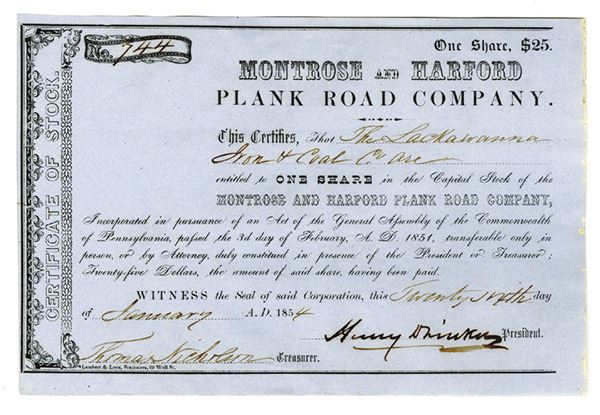 CERTIFICATE OF STOCK.
No. 744
One Share, $25.
MONTROSE AND HARFORD
PLANK ROAD COMPANY.
This Certifies, That The Lackawanna
Iron & Coal Co are
entitled to ONE SHARE in the Capital Stock of the
MONTROSE AND HARFORD PLANK ROAD COMPANY,
Incorporated in pursuance of an Act of the General Assembly of the Commonwealth
of Pennsylvania, passed the 3d day of February, A. D. 1851, transferable only in
person, or by Attorney, duly constituted in presence of the President or Treasurer;
Twenty-five Dollars, the amount of said share, having been paid.
WITNESS the Seal of said Corporation, this Twenty Sixth day
of January A. D. 1854
Henry Drinker President.
Thomas Nicholson Treasurer.
Lambert & Lane, Stationers, 69 Wall St.